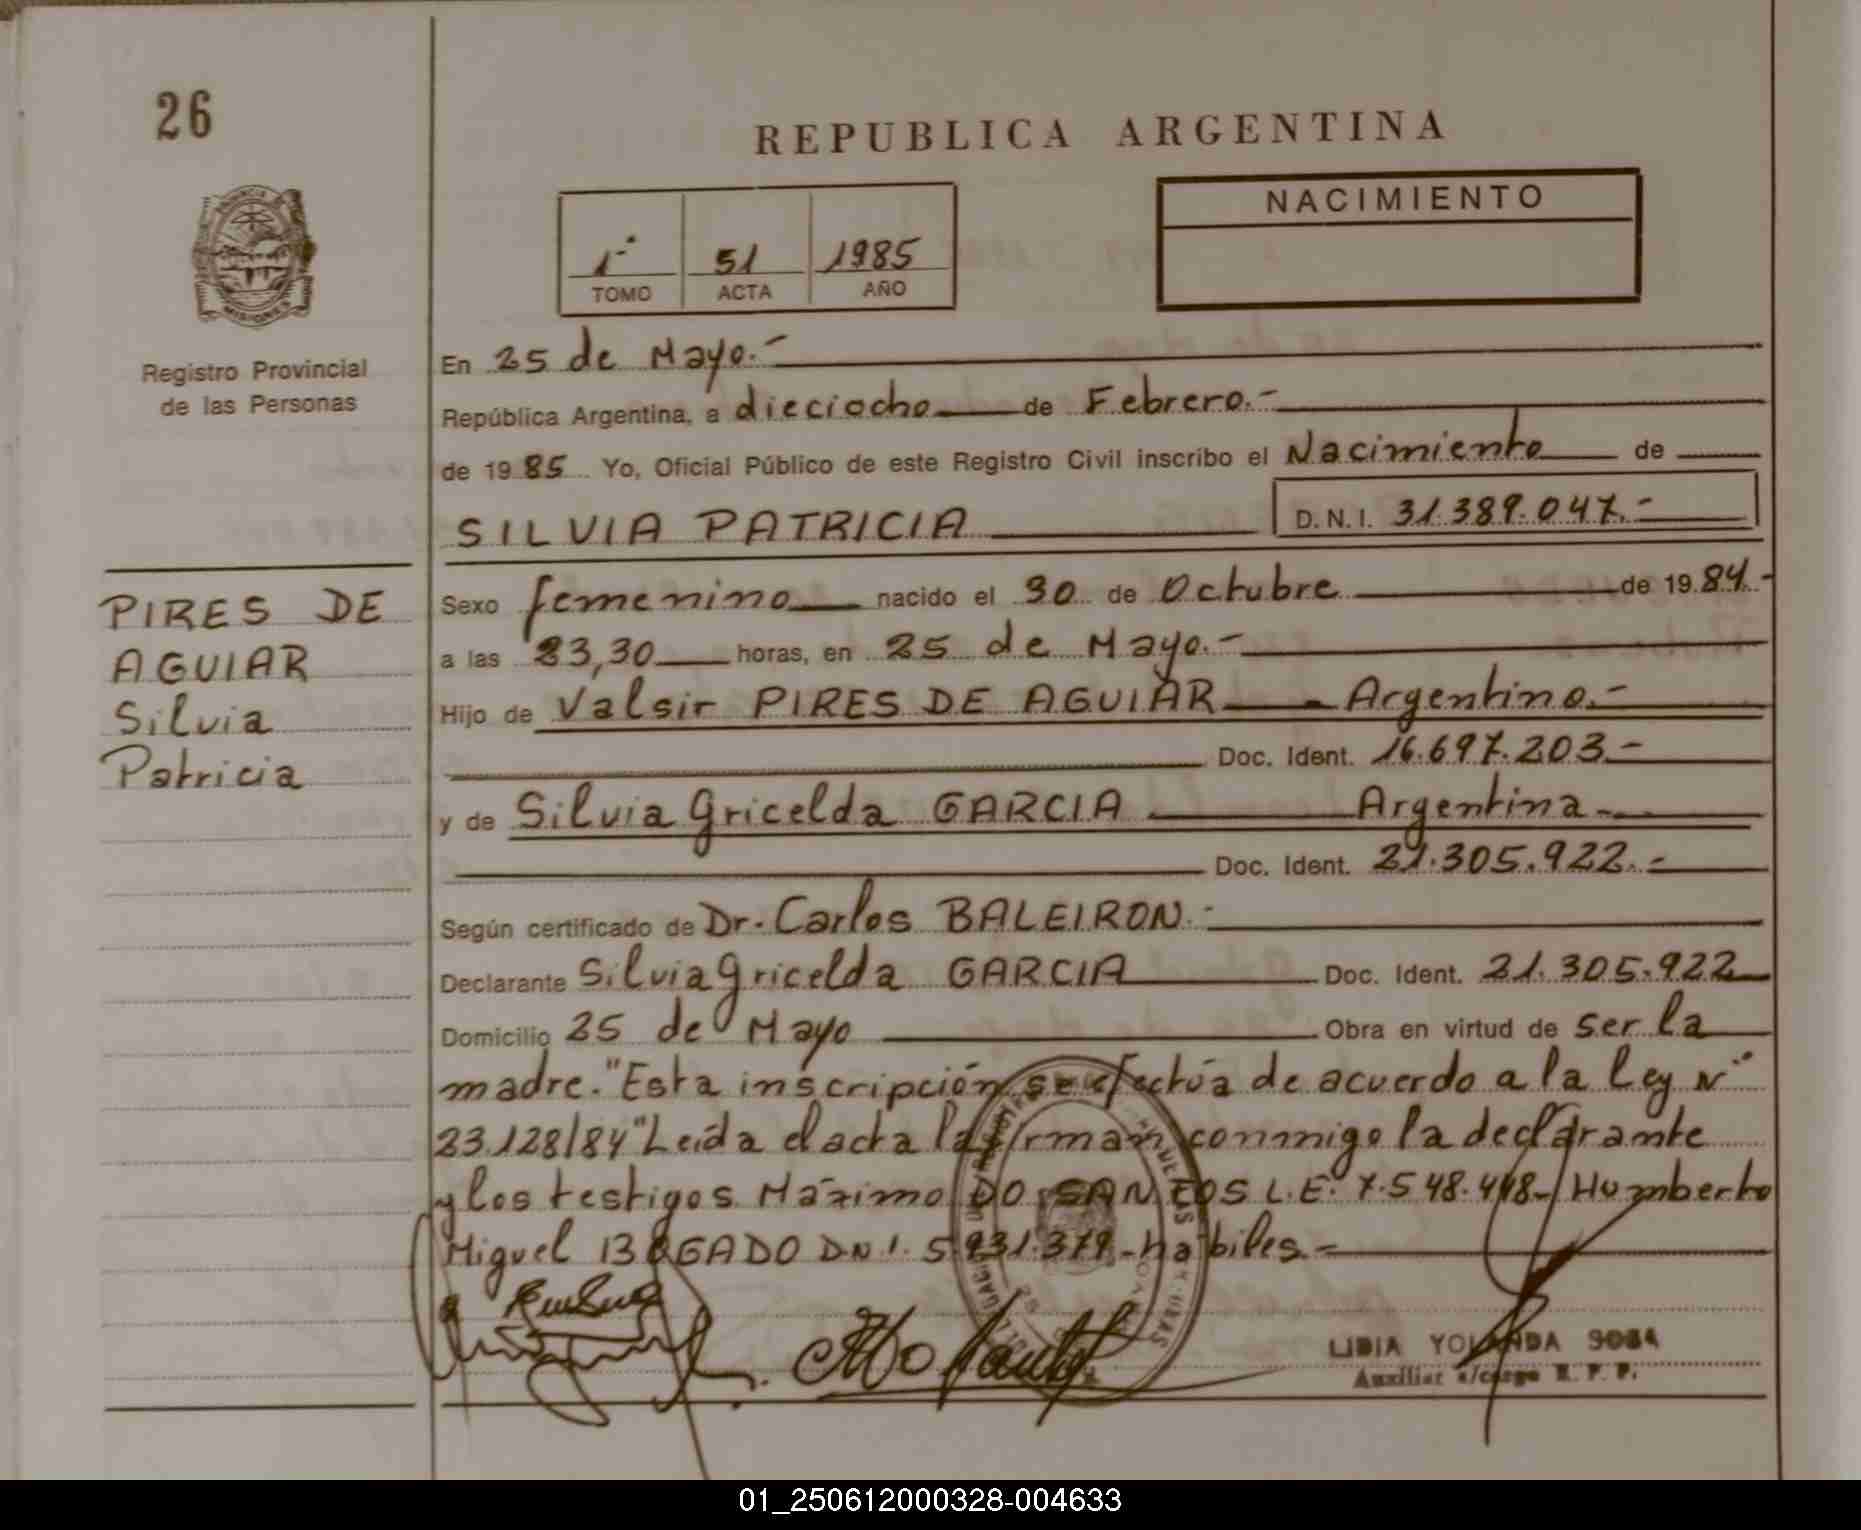 26
REPUBLICA ARGENTINA
NACIMIENTO
1º 51 1985
TOMO ACTA AÑO
PROVINCIA
MISIONES
Registro Provincial
de las Personas
En 25 de Mayo.-
República Argentina, a dieciocho de Febrero.-
de 1985 Yo, Oficial Público de este Registro Civil inscribo el Nacimiento de
SILVIA PATRICIA D.N.I. 31.389.047.-
PIRES DE
AGUIAR
Silvia
Patricia
Sexo femenino nacido el 30 de Octubre de 1984.-
a las 23,30 horas, en 25 de Mayo.-
Hijo de Valsir PIRES DE AGUIAR - Argentino.-
Doc. Ident. 16.697.203.-
y de Silvia Gricelda GARCIA Argentina-
Doc. Ident. 21.305.922.-
Según certificado de Dr. Carlos BALEIRON.-
Declarante Silvia Gricelda GARCIA Doc. Ident. 21.305.922
Domicilio 25 de Mayo Obra en virtud de ser la
madre."Esta inscripción se efectúa de acuerdo a la Ley Nº
23.128/84"Leída el acta la firman conmigo la declarante
y los testigos Máximo DO SANTOS L.E. 7.548.448-/Humberto
Miguel BOGADO DNI. 5.931.379-hábiles-
LIDIA YOLANDA SOSA
Auxiliar a/cargo R. P. P.
01_250612000328-004633